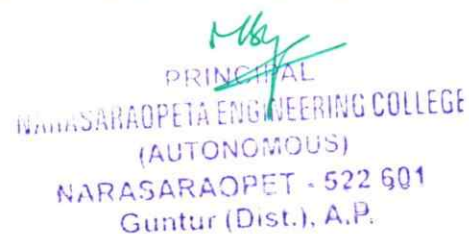 PRINCIPAL
NARASARAOPETA ENGINEERING COLLEGE
(AUTONOMOUS)
NARASARAOPET - 522 601
Guntur (Dist.), A.P.